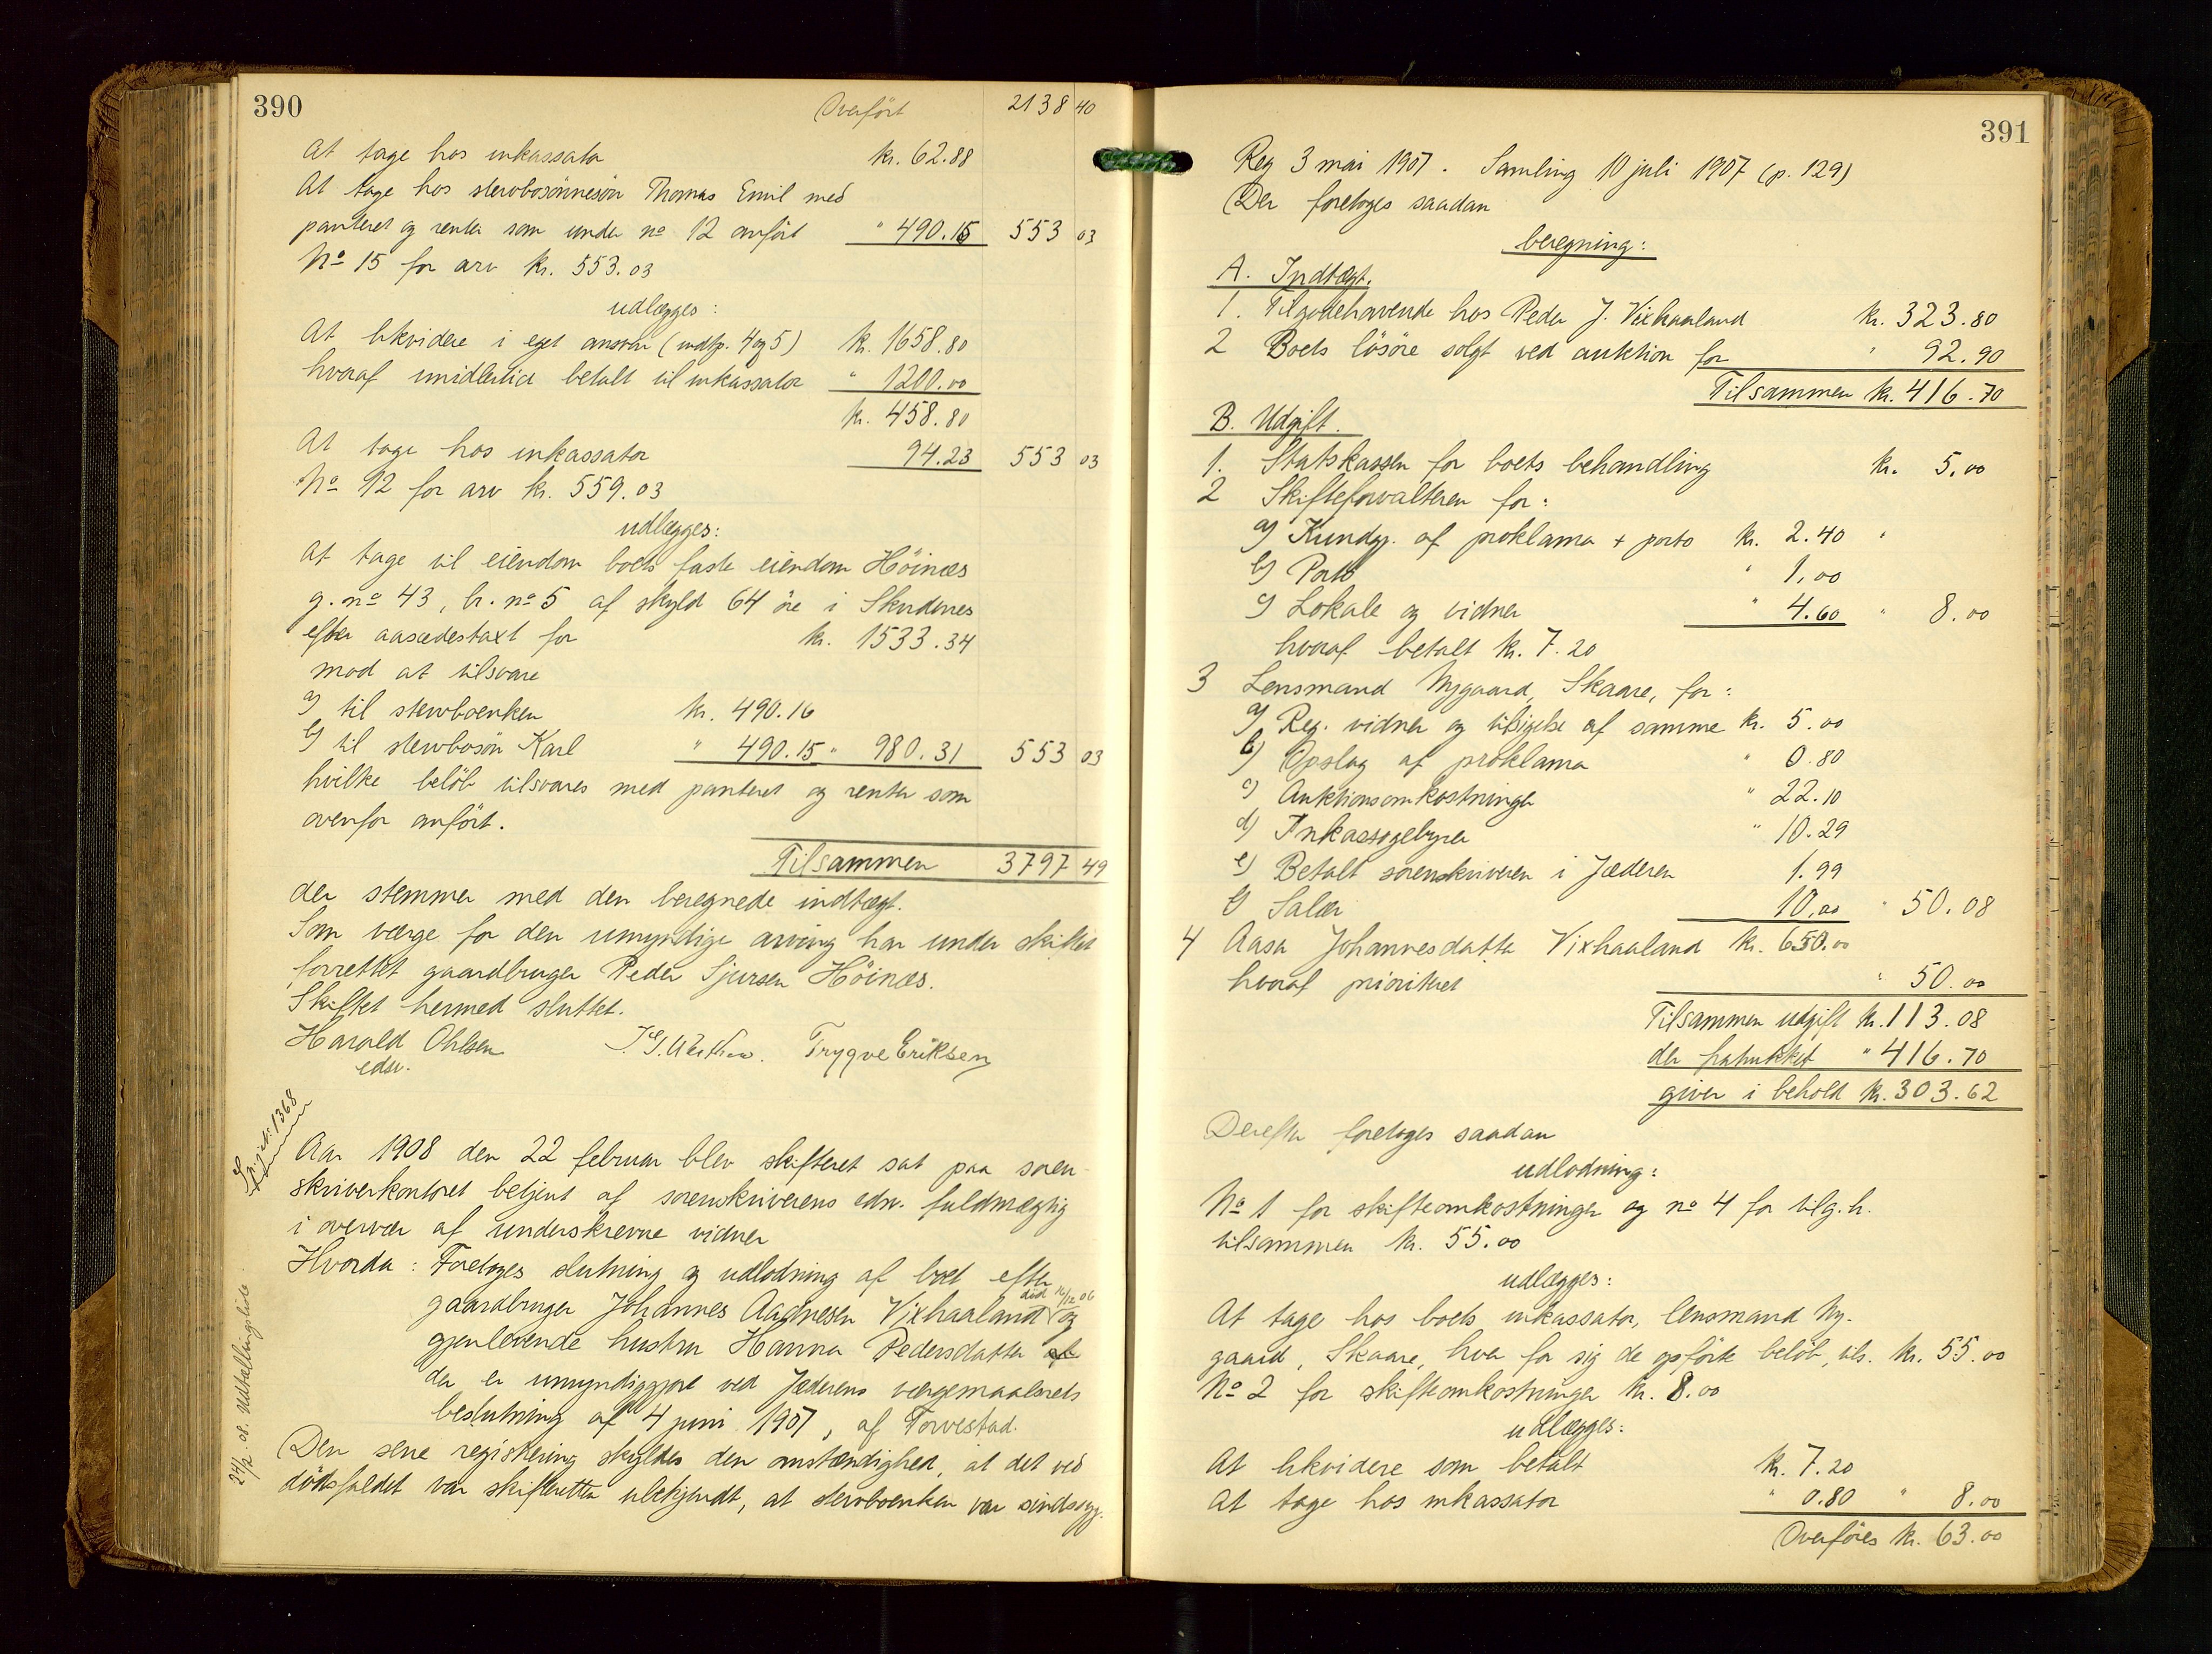 390
Overført 2138 40
At tage hos inkassator kr. 62.88
At tage hos stervbosönnesön Thomas Emil med
panteret og renter som under no 12 anfört " 490.15 553 03
No 15 for arv kr. 553.03
udlægges:
At likvidere i eget ansvar (indtp. 4 og 5) kr. 1658.80
hvoraf imidlertid betalt til inkassator " 1200.00
kr. 458.80
At tage hos inkassator 94.23 553 03
No 12 for arv kr. 559.03
udlægges:
At tage til eiendom boets faste eiendom Höines
g. no 43, br. no 5 af skyld 64 öre i Skudenes
efter aasædestaxt for kr. 1533.34
mod at tilsvare
a) til stervboenken kr. 490.16
b) til stervbosön Karl " 490.15 " 980.31 553 03
hvilke belöb tilsvares med panteret og renter som
ovenfor anfört.
Tilsammen 3797 49
der stemmer med den beregnede indtægt.
Som værge for den umyndige arving har under skiftet
forrettet gaardbruger Peder Sjursen Höines.
Skiftet hermed sluttet.
Harald Ohlsen Trygve Eriksen
edsv.
No 1368
Aar 1908 den 22 februar blev skifteret sat paa soren-
skriverkontoret betjent af sorenskriverens edsv. fuldmægtig
i overvær af underskrevne vidner
Hvorda: Foretoges slutning og udlodning af boet efter
gaardbruger Johannes Aadnesen Vixhaaland död 16/12 06 og
gjenlevende hustru Hanna Pedersdatter af
der er umyndiggjort ved Jæderens værgemaalsrets
beslutning af 4 juni 1907, af Torvestad.
Den sene registrering skyldes den omstændighed, at det ved
dödsfaldet var skifteretten ubekjendt, at stervboenken var sindssyg.
24/2 08. Udbetalingsliste.
391
Reg 3 mai 1907. Samling 10 juli 1907 (p. 129)
Der foretoges saadan
beregning:
A. Indtægt.
1. Tilgodehavende hos Peder J. Vixhaaland kr. 323.80
2 Boets lösöre solgt ved auktion for " 92.90
Tilsammen kr. 416.70
B. Udgift.
1. Statskassen for boets behandling kr. 5.00
2 Skifteforvalteren for:
a) Kundgj. af proklama + porto kr. 2.40 "
b) Porto " 1.00
c) Lokale og vidner " 4.60 " 8.00
hvoraf betalt kr. 7.20
3 Lensmand Nygaard, Skaare, for:
a) Reg. vidner og tilsigelse af samme kr. 5.00
b) Opslag af proklama " 0.80
c) Auktionsomkostninger " 22.10
d) Inkassogebyrer " 10.29
e) Betalt sorenskriveren i Jæderen 1.99
f) Salær 10.00 " 50.08
4 Aasa Johannesdatter Vixhaaland kr. 650.00
hvoraf prioritert " 50.00
Tilsammen udgift kr. 113.08
der fratrukket " 416.70
giver i behold kr. 303.62
Derefter foretoges saadan
udlodning:
No 1 for skifteomkostninger og no 4 for tilg.h.
tilsammen kr. 55.00
udlægges:
At tage hos boets inkassator, lensmand Ny-
gaard, Skaare, hver for sig de opförte belöb, tils. kr. 55.00
No 2 for skifteomkostninger kr. 8.00
udlægges:
At likvidere som betalt kr. 7.20
At tage hos inkassator " 0.80 " 8.00
Overföres kr. 63.00